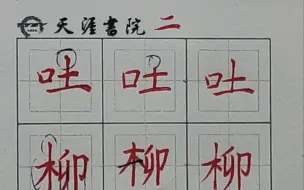 天涯書院 二
吐 吐 吐
柳 柳 柳